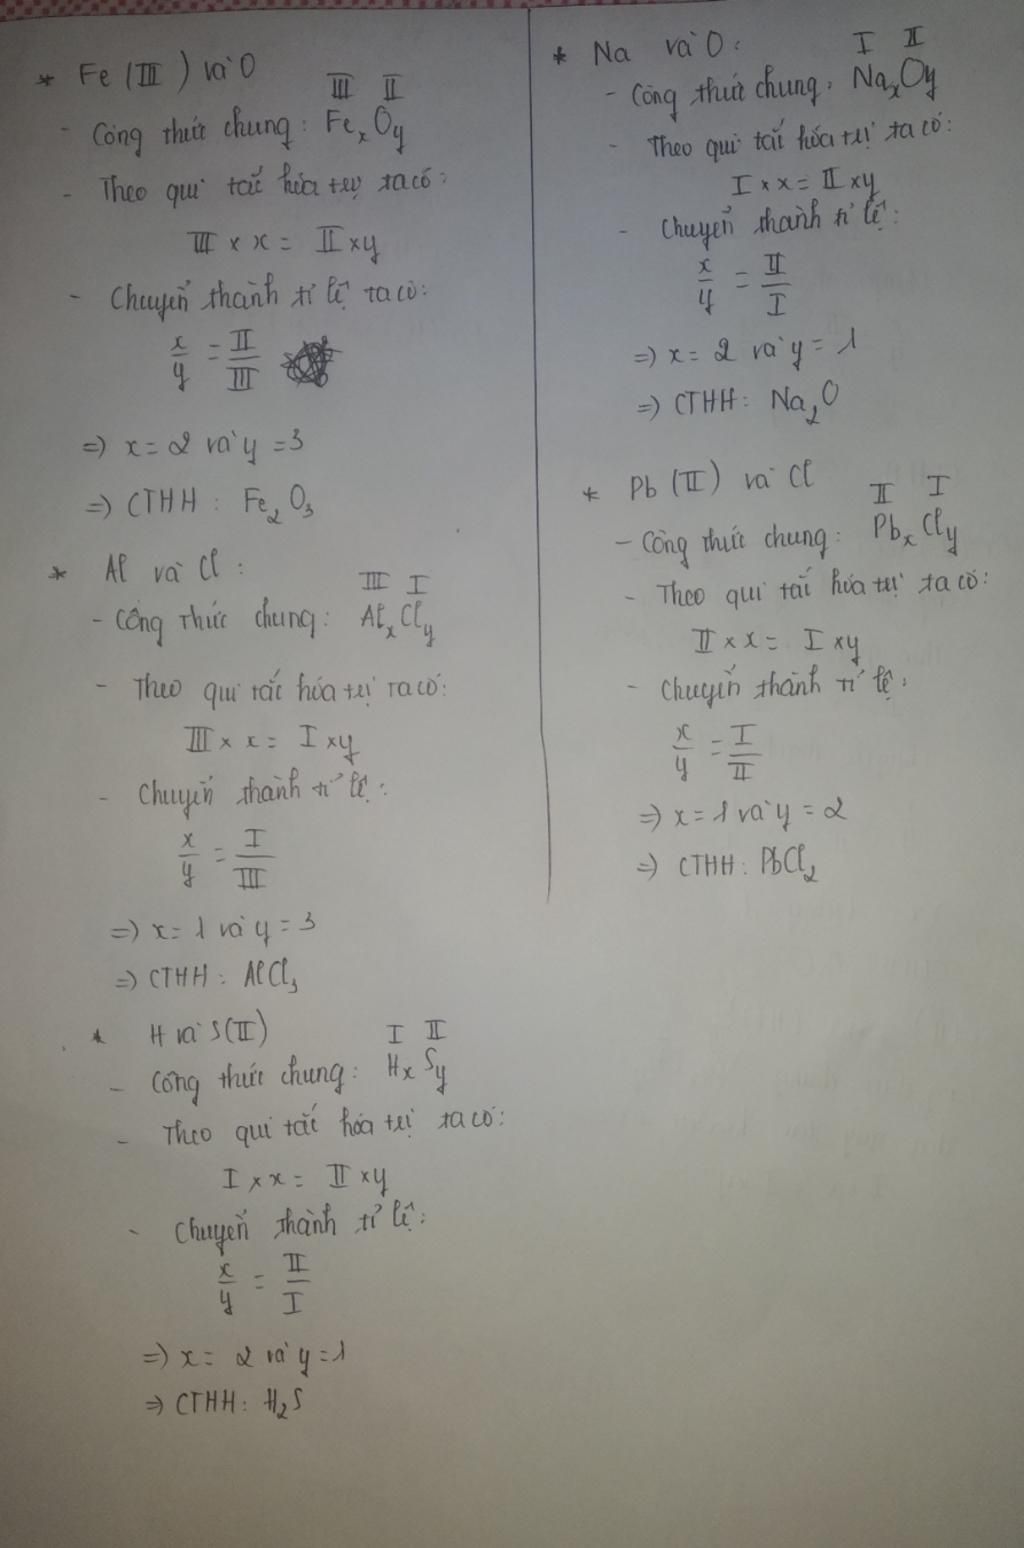 * Fe (III) và O
III II
- Công thức chung: FexOy
- Theo qui tắc hóa trị ta có:
III × x = II × y
- Chuyển thành tỉ lệ ta có:
x/y = II/III
=) x = 2 và y = 3
=) CTHH: Fe2O3
* Al và Cl:
III I
- Công thức chung: AlxCly
- Theo qui tắc hóa trị ta có:
III × x = I × y
- Chuyển thành tỉ lệ:
x/y = I/III
=) x = 1 và y = 3
=) CTHH: AlCl3
* H và S(II)
I II
- Công thức chung: HxSy
- Theo qui tắc hóa trị ta có:
I × x = II × y
- Chuyển thành tỉ lệ:
x/y = II/I
=) x = 2 và y = 1
=) CTHH: H2S
* Na và O:
I II
- Công thức chung: NaxOy
- Theo qui tắc hóa trị ta có:
I × x = II × y
- Chuyển thành tỉ lệ:
x/y = II/I
=) x = 2 và y = 1
=) CTHH: Na2O
* Pb (II) và Cl
II I
- Công thức chung: PbxCly
- Theo qui tắc hóa trị ta có:
II × x = I × y
- Chuyển thành tỉ lệ:
x/y = I/II
=) x = 1 và y = 2
=) CTHH: PbCl2